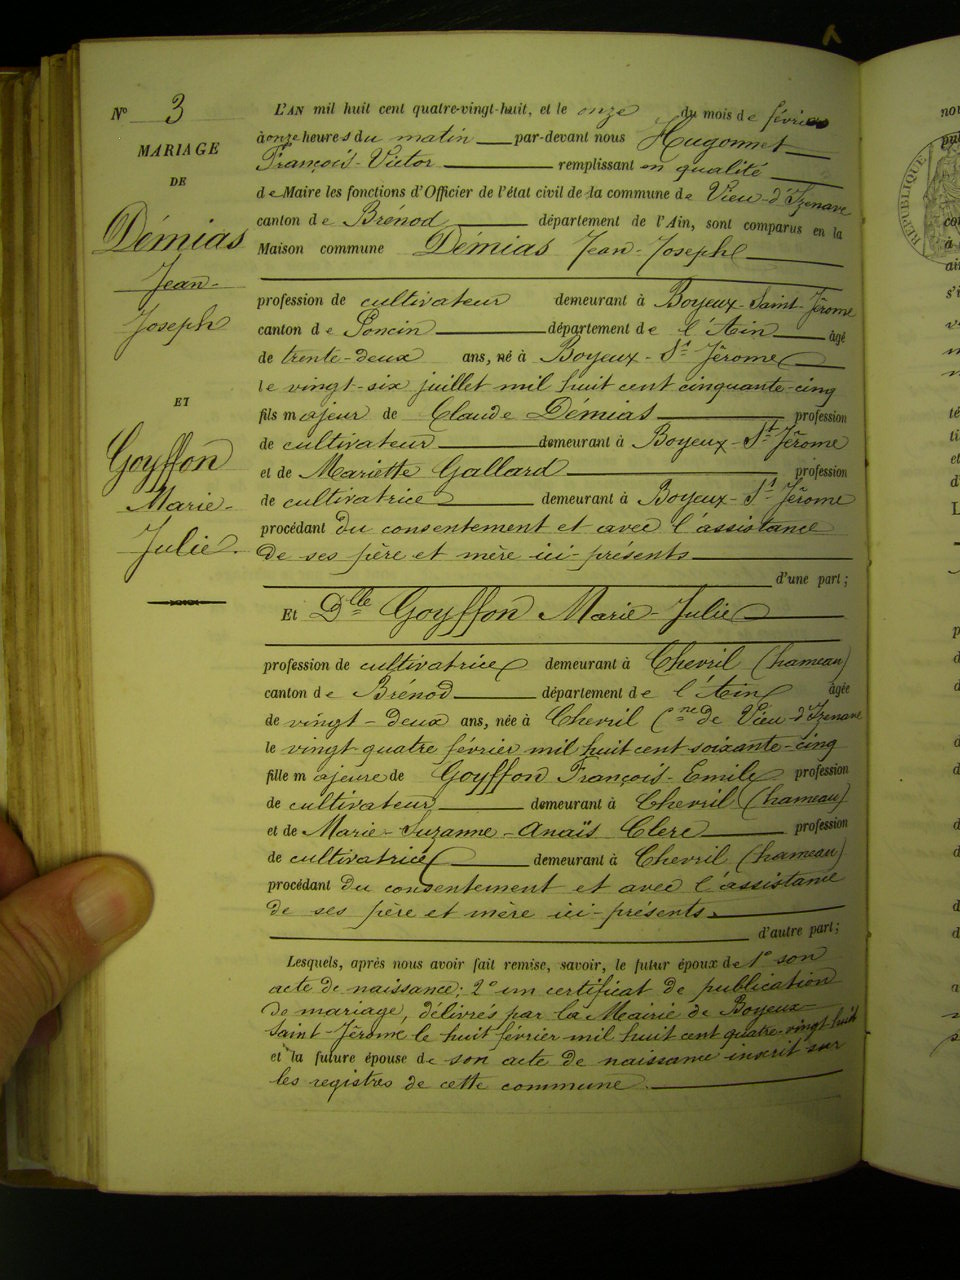 N° 3
MARIAGE
DE
Démias
Jean-
Joseph
ET
Goyffon
Marie-
Julie.
L'AN mil huit cent quatre-vingt-huit, et le onze du mois de février
à onze heures du matin par-devant nous Hugonnet
François-Victor remplissant en qualité
de Maire les fonctions d'Officier de l'état civil de la commune de Vieu-d'Izenave
canton de Brénod département de l'Ain, sont comparus en la
Maison commune Démias Jean-Joseph
profession de cultivateur demeurant à Boyeux-Saint-Jérome
canton de Poncin département de l'Ain âgé
de trente-deux ans, né à Boyeux-St Jérome
le vingt-six juillet mil huit cent cinquante-cinq
fils majeur de Claude Démias profession
de cultivateur demeurant à Boyeux-St Jérome
et de Mariette Gallard profession
de cultivatrice demeurant à Boyeux-St Jérome
procédant du consentement et avec l'assistance
de ses père et mère ici-présents
d'une part;
Et Dlle Goyffon Marie-Julie
profession de cultivatrice demeurant à Chevril (hameau)
canton de Brénod département de l'Ain âgée
de vingt-deux ans, née à Chevril Cne de Vieu-d'Izenave
le vingt-quatre février mil huit cent soixante-cinq
fille majeure de Goyffon François-Emile profession
de cultivateur demeurant à Chevril (hameau)
et de Marie-Suzanne-Anaïs Clerc profession
de cultivatrice demeurant à Chevril (hameau)
procédant du consentement et avec l'assistance
de ses père et mère ici-présents.
d'autre part;
Lesquels, après nous avoir fait remise, savoir, le futur époux de 1° son
acte de naissance; 2° un certificat de publication
de mariage, délivrés par la Mairie de Boyeux-
Saint-Jérome le huit février mil huit cent quatre-vingt-huit
et la future épouse de son acte de naissance inscrit sur
les registres de cette commune.
RÉPUBLIQUE